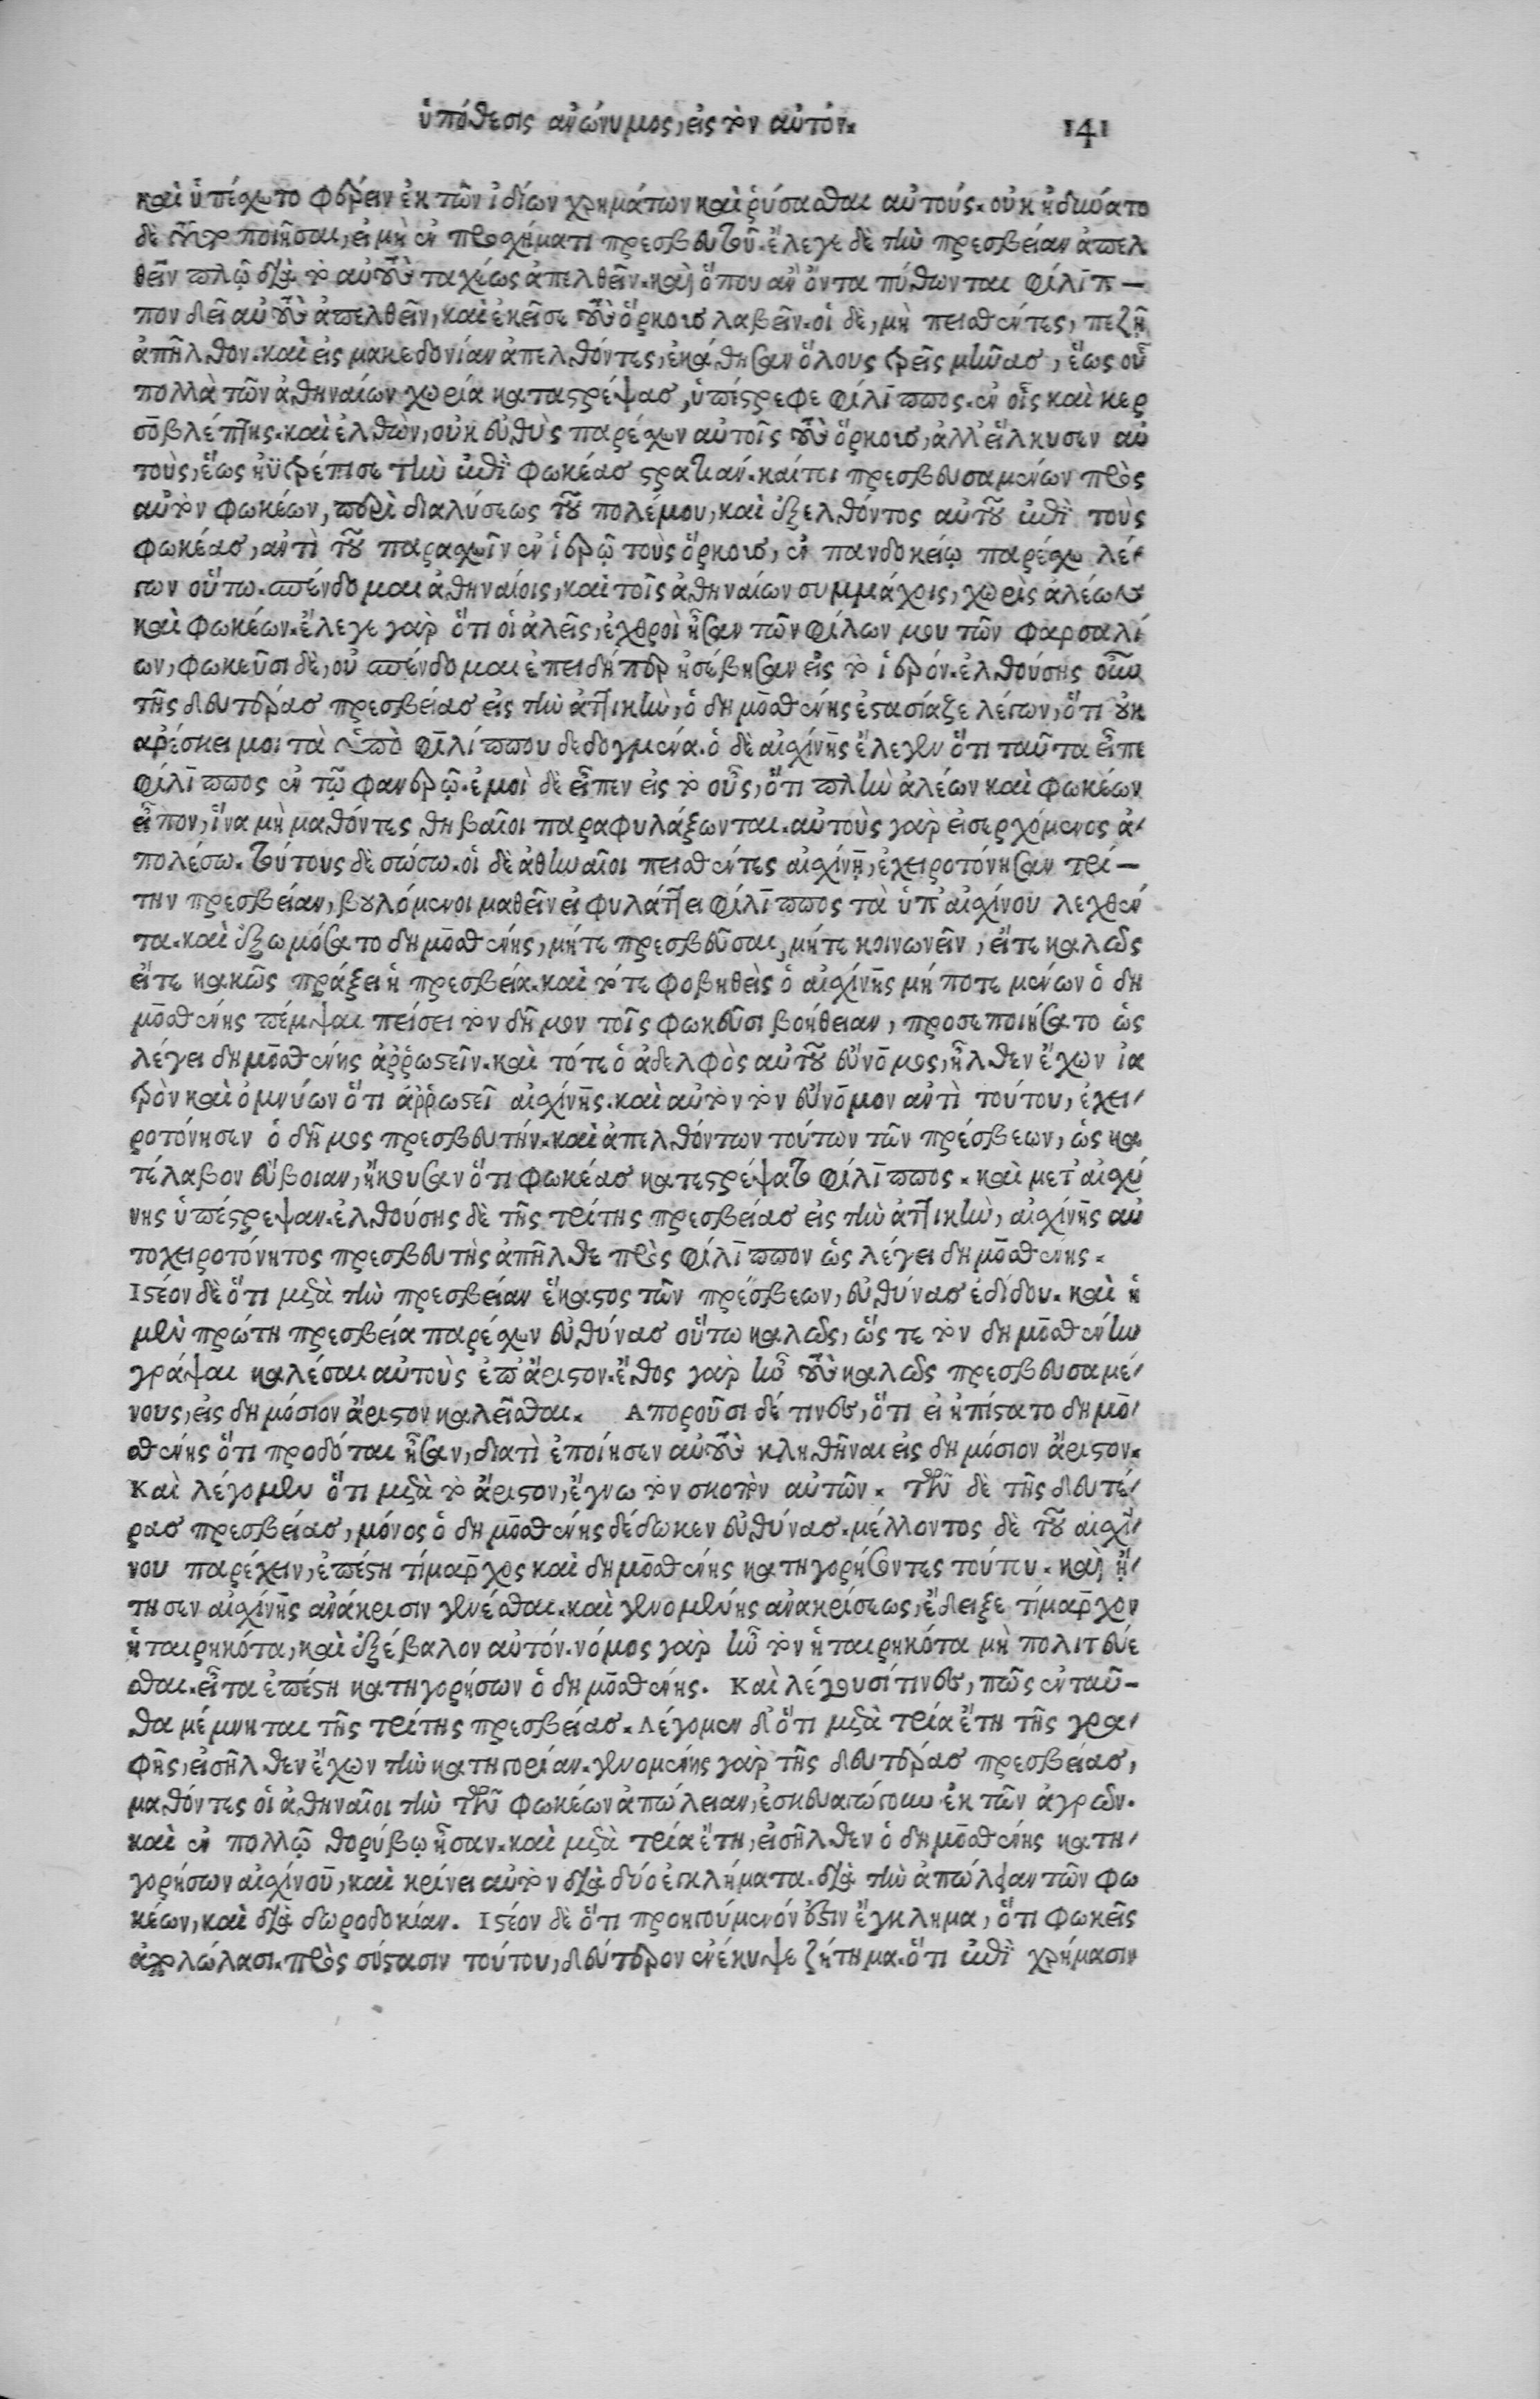 ὑπόθεσις ανώνυμος, εἰς τὸν αὐτόν. 141
καὶ ὑπέσχετο φέρειν ἐκ τῶν ἰδίων χρημάτων καὶ ῥύσασθαι αὐτούς. οὐκ ἠδύνατο
δὲ τοῦτο ποιῆσαι, εἰ μὴ ἐν προσχήματι πρεσβευτοῦ. ἔλεγε δὲ τὴν πρεσβείαν ἀπελ
θεῖν πλῷ διὰ τὸ αὐτοὺς ταχέως ἀπελθεῖν. καὶ ὅπου ἀν ὄντα πύθωνται φίλιπ-
πον δεῖ αὐτοὺς ἀπελθεῖν, καὶ ἐκεῖσε τοὺς ὅρκους λαβεῖν. οἱ δὲ, μὴ πεισθέντες, πεζῇ
ἀπῆλθον. καὶ εἰς μακεδονίαν ἀπελθόντες, ἐκάθησαν ὅλους τρεῖς μῆνας, ἕως οὗ
πολλὰ τῶν ἀθηναίων χωρία καταστρέψας, ὑπέστρεφε φίλιππος. ἐν οἷς καὶ κερ
σοβλέπτης. καὶ ἐλθὼν, οὐκ εὐθὺς παρέσχεν αὐτοῖς τοὺς ὅρκους, ἀλλ' εἵλκυσεν αὐ
τοὺς, ἕως ηὐτρέπισε τὴν ἐπὶ φωκέας στρατιάν. καίτοι πρεσβευσαμένων πρὸς
αὐτὸν φωκέων, περὶ διαλύσεως τοῦ πολέμου, καὶ ἐξελθόντος αὐτοῦ ἐπὶ τοὺς
φωκέας, ἀντὶ τοῦ παρασχεῖν ἐν ἱερῷ τοὺς ὅρκους, ἐν πανδοκείῳ παρέσχε λέ-
γων οὕτω. σπένδομαι ἀθηναίοις, καὶ τοῖς ἀθηναίων συμμάχοις, χωρὶς ἁλέων
καὶ φωκέων. ἔλεγε γὰρ ὅτι οἱ ἁλεῖς, ἐχθροὶ ἦσαν τῶν φίλων μου τῶν φαρσαλί
ων, φωκεῦσι δὲ, οὐ σπένδομαι ἐπειδήπερ ἠσέβησαν εἰς τὸ ἱερόν. ἐλθούσης οὖν
τῆς δευτέρας πρεσβείας εἰς τὴν ἀττικὴν, ὁ δημοσθένης ἐστασίαζε λέγων, ὅτι οὐκ
αρέσκει μοι τὰ ὑπὸ φιλίππου δεδογμένα. ὁ δὲ αἰσχίνης ἔλεγεν ὅτι ταῦτα εἶπε
φίλιππος ἐν τῷ φανερῷ. ἐμοὶ δὲ εἶπεν εἰς τὸ οὖς, ὅτι πλὴν ἁλέων καὶ φωκέων
εἶπον, ἵνα μὴ μαθόντες θηβαῖοι παραφυλάξωνται. αὐτοὺς γὰρ εἰσερχόμενος ἀ-
πολέσω. τούτους δὲ σώσω. οἱ δὲ ἀθηναῖοι πεισθέντες αἰσχίνῃ, ἐχειροτόνησαν τρί-
την πρεσβείαν, βουλόμενοι μαθεῖν εἰ φυλάττει φίλιππος τὰ ὑπ' αἰσχίνου λεχθέν
τα. καὶ ἐξωμόσατο δημοσθένης, μήτε πρεσβεῦσαι, μήτε κοινωνεῖν, εἴτε καλῶς
εἴτε κακῶς πράξει ἡ πρεσβεία. καὶ τότε φοβηθεὶς ὁ αἰσχίνης μή ποτε μένων ὁ δη
μοσθένης πέμψαι πείσει τὸν δῆμον τοῖς φωκεῦσι βοήθειαν, προσεποιήσατο ὡς
λέγει δημοσθένης ἀῤῥωστεῖν. καὶ τότε ὁ ἀδελφὸς αὐτοῦ εὔνομος, ἦλθεν ἔχων ἰα
τρὸν καὶ ὀμνύων ὅτι ἀῤῥωστεῖ αἰσχίνης. καὶ αὐτὸν τὸν εὔνομον αντὶ τούτου, ἐχει-
ροτόνησεν ὁ δῆμος πρεσβευτήν. καὶ ἀπελθόντων τούτων τῶν πρέσβεων, ὡς κα
τέλαβον εὔβοιαν, ἤκουσαν ὅτι φωκέας κατεστρέψατο φίλιππος. καὶ μετ' αἰσχύ
νης ὑπέστρεψαν. ἐλθούσης δὲ τῆς τρίτης πρεσβείας εἰς τὴν ἀττικὴν, αἰσχίνης αὐ
τοχειροτόνητος πρεσβευτὴς ἀπῆλθε πρὸς φίλιππον ὡς λέγει δημοσθένης.
Ἰστέον δὲ ὅτι μετὰ τὴν πρεσβείαν ἕκαστος τῶν πρέσβεων, εὐθύνας ἐδίδου. καὶ ἡ
μὲν πρώτη πρεσβεία παρέσχεν εὐθύνας οὕτω καλῶς, ὥς τε τὸν δημοσθένην
γράψαι καλέσαι αὐτοὺς ἐπ' ἄριστον. ἔθος γὰρ ἦν τοὺς καλῶς πρεσβευσαμέ-
νους, εἰς δημόσιον ἄριστον καλεῖσθαι. Ἀποροῦσι δέ τινες, ὅτι εἰ ἠπίστατο δημο-
σθένης ὅτι προδόται ἦσαν, διατὶ ἐποίησεν αὐτοὺς κληθῆναι εἰς δημόσιον ἄριστον.
Καὶ λέγομεν ὅτι μετὰ τὸ ἄριστον, ἔγνω τὸν σκοπὸν αὐτῶν. τῶν δὲ τῆς δευτέ-
ρας πρεσβείας, μόνος ὁ δημοσθένης δέδωκεν εὐθύνας. μέλλοντος δὲ τοῦ αἰσχί-
νου παρέχειν, ἐπέστη τίμαρχος καὶ δημοσθένης κατηγορήσοντες τούτου. καὶ ᾔ-
τησεν αἰσχίνης ανάκρισιν γενέσθαι. καὶ γενομένης ανακρίσεως, ἔδειξε τίμαρχον
ἡταιρηκότα, καὶ ἐξέβαλον αὐτόν. νόμος γὰρ ἦν τὸν ἡταιρηκότα μὴ πολιτεύε
σθαι. εἶτα ἐπέστη κατηγορήσων ὁ δημοσθένης. Καὶ λέγουσί τινες, πῶς ἐνταῦ-
θα μέμνηται τῆς τρίτης πρεσβείας. Λέγομεν δ' ὅτι μετὰ τρία ἔτη τῆς γρα-
φῆς, εἰσῆλθεν ἔχων τὴν κατηγορίαν. γενομένης γὰρ τῆς δευτέρας πρεσβείας,
μαθόντες οἱ ἀθηναῖοι τὴν τῶν φωκέων ἀπώλειαν, ἐσκευαγώγουν ἐκ τῶν ἀγρῶν.
καὶ ἐν πολλῷ θορύβῳ ἦσαν. καὶ μετὰ τρία ἔτη, εἰσῆλθεν ὁ δημοσθένης κατη-
γορήσων αἰσχίνου, καὶ κρίνει αὐτὸν διὰ δύο ἐγκλήματα. διὰ τὴν ἀπώλειαν τῶν φω
κέων, καὶ διὰ δωροδοκίαν. Ἰστέον δὲ ὅτι προηγούμενόν ἐστιν ἔγκλημα, ὅτι φωκεῖς
ἀπολώλασι. πρὸς σύστασιν τούτου, δεύτερον ἐνέκυψε ζήτημα. ὅτι ἐπὶ χρήμασιν